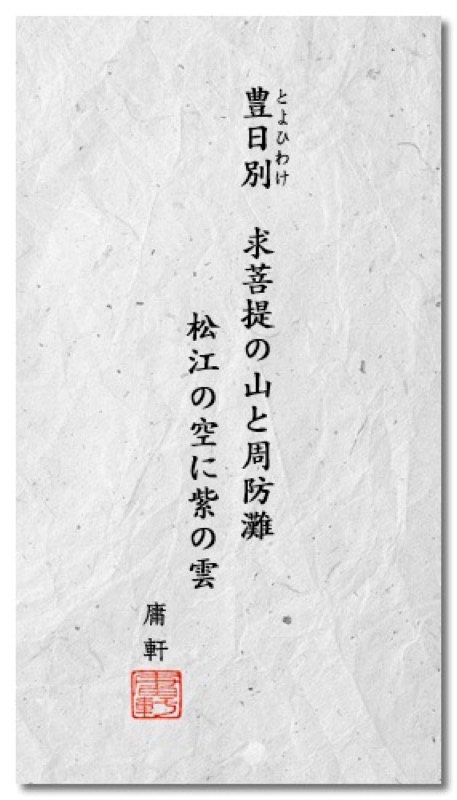 豊日別　求菩提の山と周防灘
とよひわけ
松江の空に紫の雲
庸軒
庸軒